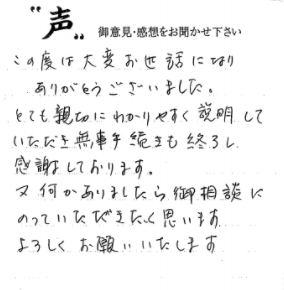 "声" 御意見・感想をお聞かせ下さい
この度は大変お世話になり
ありがとうございました。
とても親切にわかりやすく説明して
いただき無事手続きも終了し
感謝しております。
又何かありましたら御相談に
のっていただきたく思います
よろしくお願いいたします